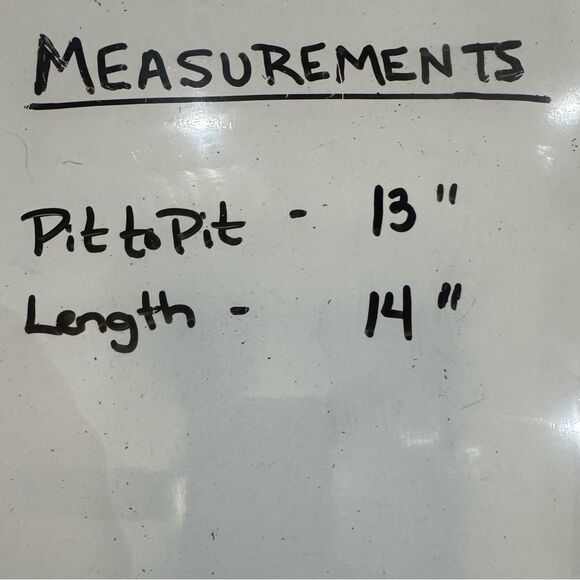 MEASUREMENTS
Pit to Pit - 13"
Length - 14"